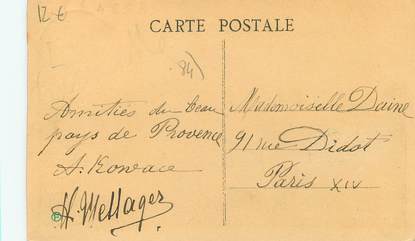 12 €
CARTE POSTALE
84)
Amitiés du beau
pays de Provence
A. Kowace
H. Messager
Mademoiselle Daine
91 rue Didot
Paris XIV